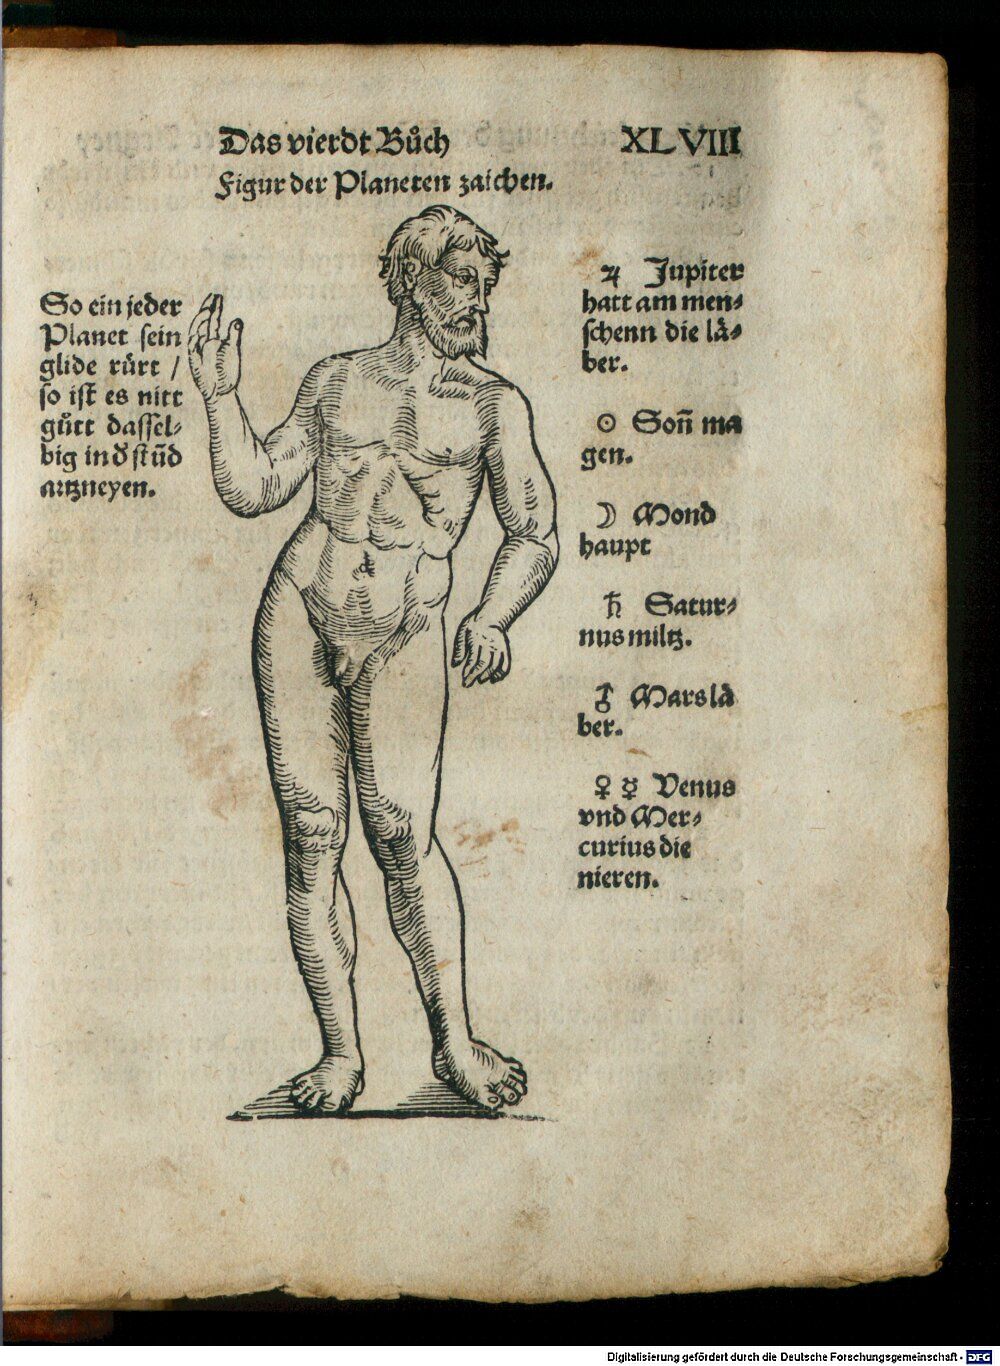 Das vierdt Bůch
XLVIII
Figur der Planeten zaichen.
So ein jeder
Planet sein
glide rürt /
so ist es nitt
gůtt dassel-
big in d̕ stūd
artzneyen.
♃ Jupiter
hatt am men-
schenn die lä-
ber.
☉ Son̄ ma
gen.
☽ Mond
haupt
♄ Satur-
nus miltz.
♂ Mars lä
ber.
♀ ☿ Venus
vnd Mer-
curius die
nieren.
Digitalisierung gefördert durch die Deutsche Forschungsgemeinschaft - DFG